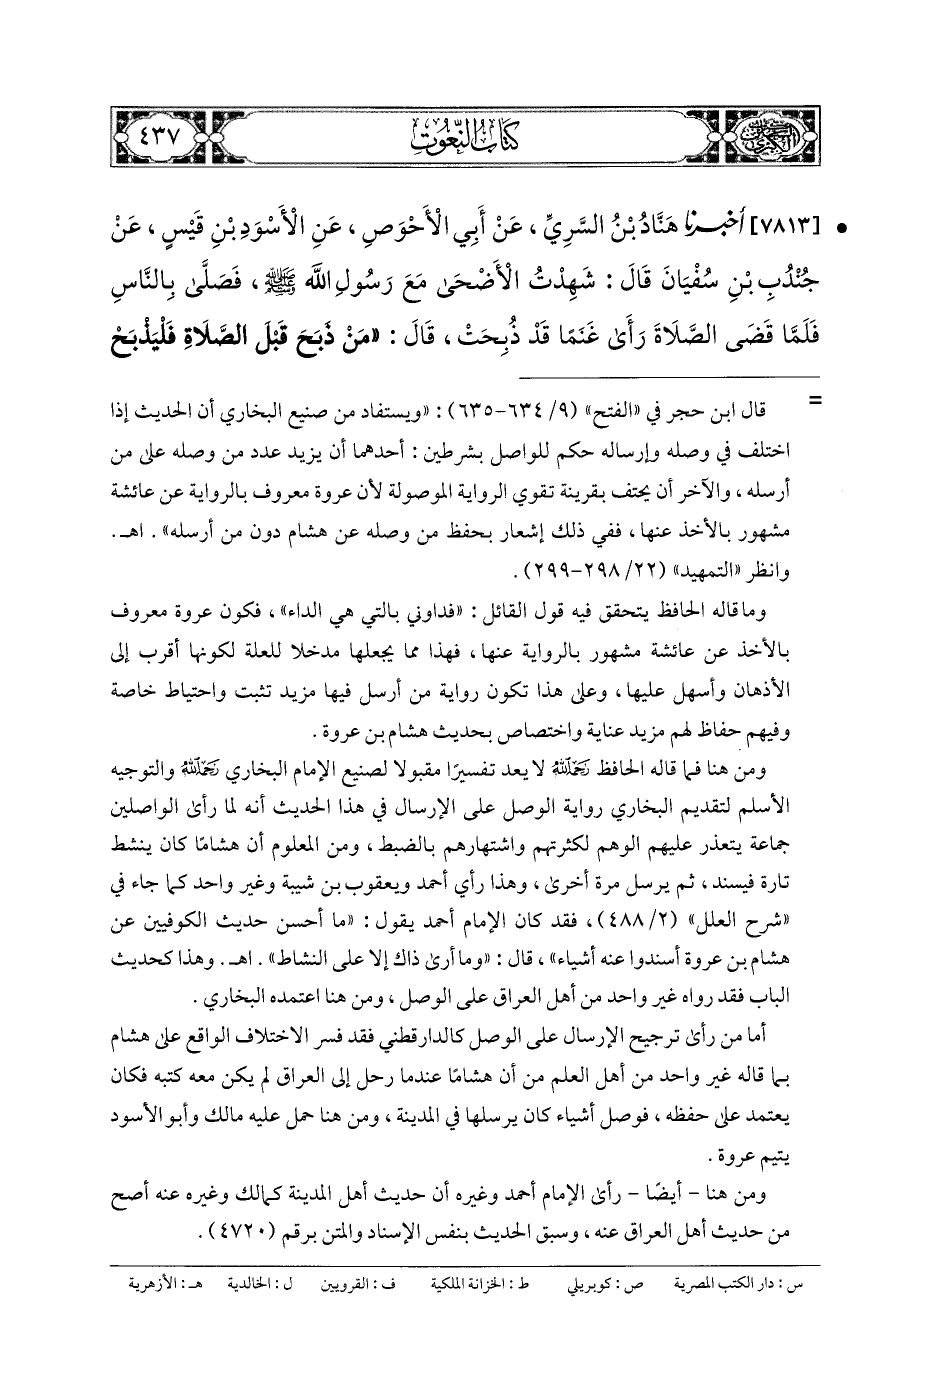 كتاب النعوت
٤٣٧
• [٧٨١٣] أخبرنا هَنَّادُ بْنُ السَّرِيِّ، عَنْ أَبِي الْأَحْوَصِ، عَنِ الْأَسْوَدِ بْنِ قَيْسٍ، عَنْ
جُنْدُبِ بْنِ سُفْيَانَ قَالَ: شَهِدْتُ الْأَضْحَىٰ مَعَ رَسُولِ اللَّهِ ﷺ، فَصَلَّىٰ بِالنَّاسِ
فَلَمَّا قَضَى الصَّلَاةَ رَأَىٰ غَنَمًا قَدْ ذُبِحَتْ، قَالَ: «مَنْ ذَبَحَ قَبْلَ الصَّلَاةِ فَلْيَذْبَحْ
= قال ابن حجر في «الفتح» (٩/ ٦٣٤-٦٣٥): «ويستفاد من صنيع البخاري أن الحديث إذا
اختلف في وصله وإرساله حكم للواصل بشرطين: أحدهما أن يزيد عدد من وصله على من
أرسله، والآخر أن يحتف بقرينة تقوي الرواية الموصولة لأن عروة معروف بالرواية عن عائشة
مشهور بالأخذ عنها، ففي ذلك إشعار بحفظ من وصله عن هشام دون من أرسله». اهـ.
وانظر «التمهيد» (٢٢/ ٢٩٨-٢٩٩).
وما قاله الحافظ يتحقق فيه قول القائل: «فداوني بالتي هي الداء»، فكون عروة معروف
بالأخذ عن عائشة مشهور بالرواية عنها، فهذا مما يجعلها مدخلا للعلة لكونها أقرب إلى
الأذهان وأسهل عليها، وعلى هذا تكون رواية من أرسل فيها مزيد تثبت واحتياط خاصة
وفيهم حفاظ لهم مزيد عناية واختصاص بحديث هشام بن عروة.
ومن هنا فما قاله الحافظ رحمه الله لا يعد تفسيرًا مقبولا لصنيع الإمام البخاري رحمه الله والتوجيه
الأسلم لتقديم البخاري رواية الوصل على الإرسال في هذا الحديث أنه لما رأى الواصلين
جماعة يتعذر عليهم الوهم لكثرتهم واشتهارهم بالضبط، ومن المعلوم أن هشامًا كان ينشط
تارة فيسند، ثم يرسل مرة أخرىٰ، وهذا رأي أحمد ويعقوب بن شيبة وغير واحد كما جاء في
«شرح العلل» (٢/ ٤٨٨)، فقد كان الإمام أحمد يقول: «ما أحسن حديث الكوفيين عن
هشام بن عروة أسندوا عنه أشياء»، قال: «وما أرىٰ ذاك إلا على النشاط». اهـ. وهذا كحديث
الباب فقد رواه غير واحد من أهل العراق على الوصل، ومن هنا اعتمده البخاري.
أما من رأىٰ ترجيح الإرسال على الوصل كالدارقطني فقد فسر الاختلاف الواقع على هشام
بما قاله غير واحد من أهل العلم من أن هشامًا عندما رحل إلى العراق لم يكن معه كتبه فكان
يعتمد على حفظه، فوصل أشياء كان يرسلها في المدينة، ومن هنا حمل عليه مالك وأبو الأسود
يتيم عروة.
ومن هنا - أيضًا - رأىٰ الإمام أحمد وغيره أن حديث أهل المدينة كمالك وغيره عنه أصح
من حديث أهل العراق عنه، وسبق الحديث بنفس الإسناد والمتن برقم (٤٧٢٠).
س: دار الكتب المصرية ص: كوبريلي ط: الخزانة الملكية ف: القرويين ل: الخالدية هـ: الأزهرية